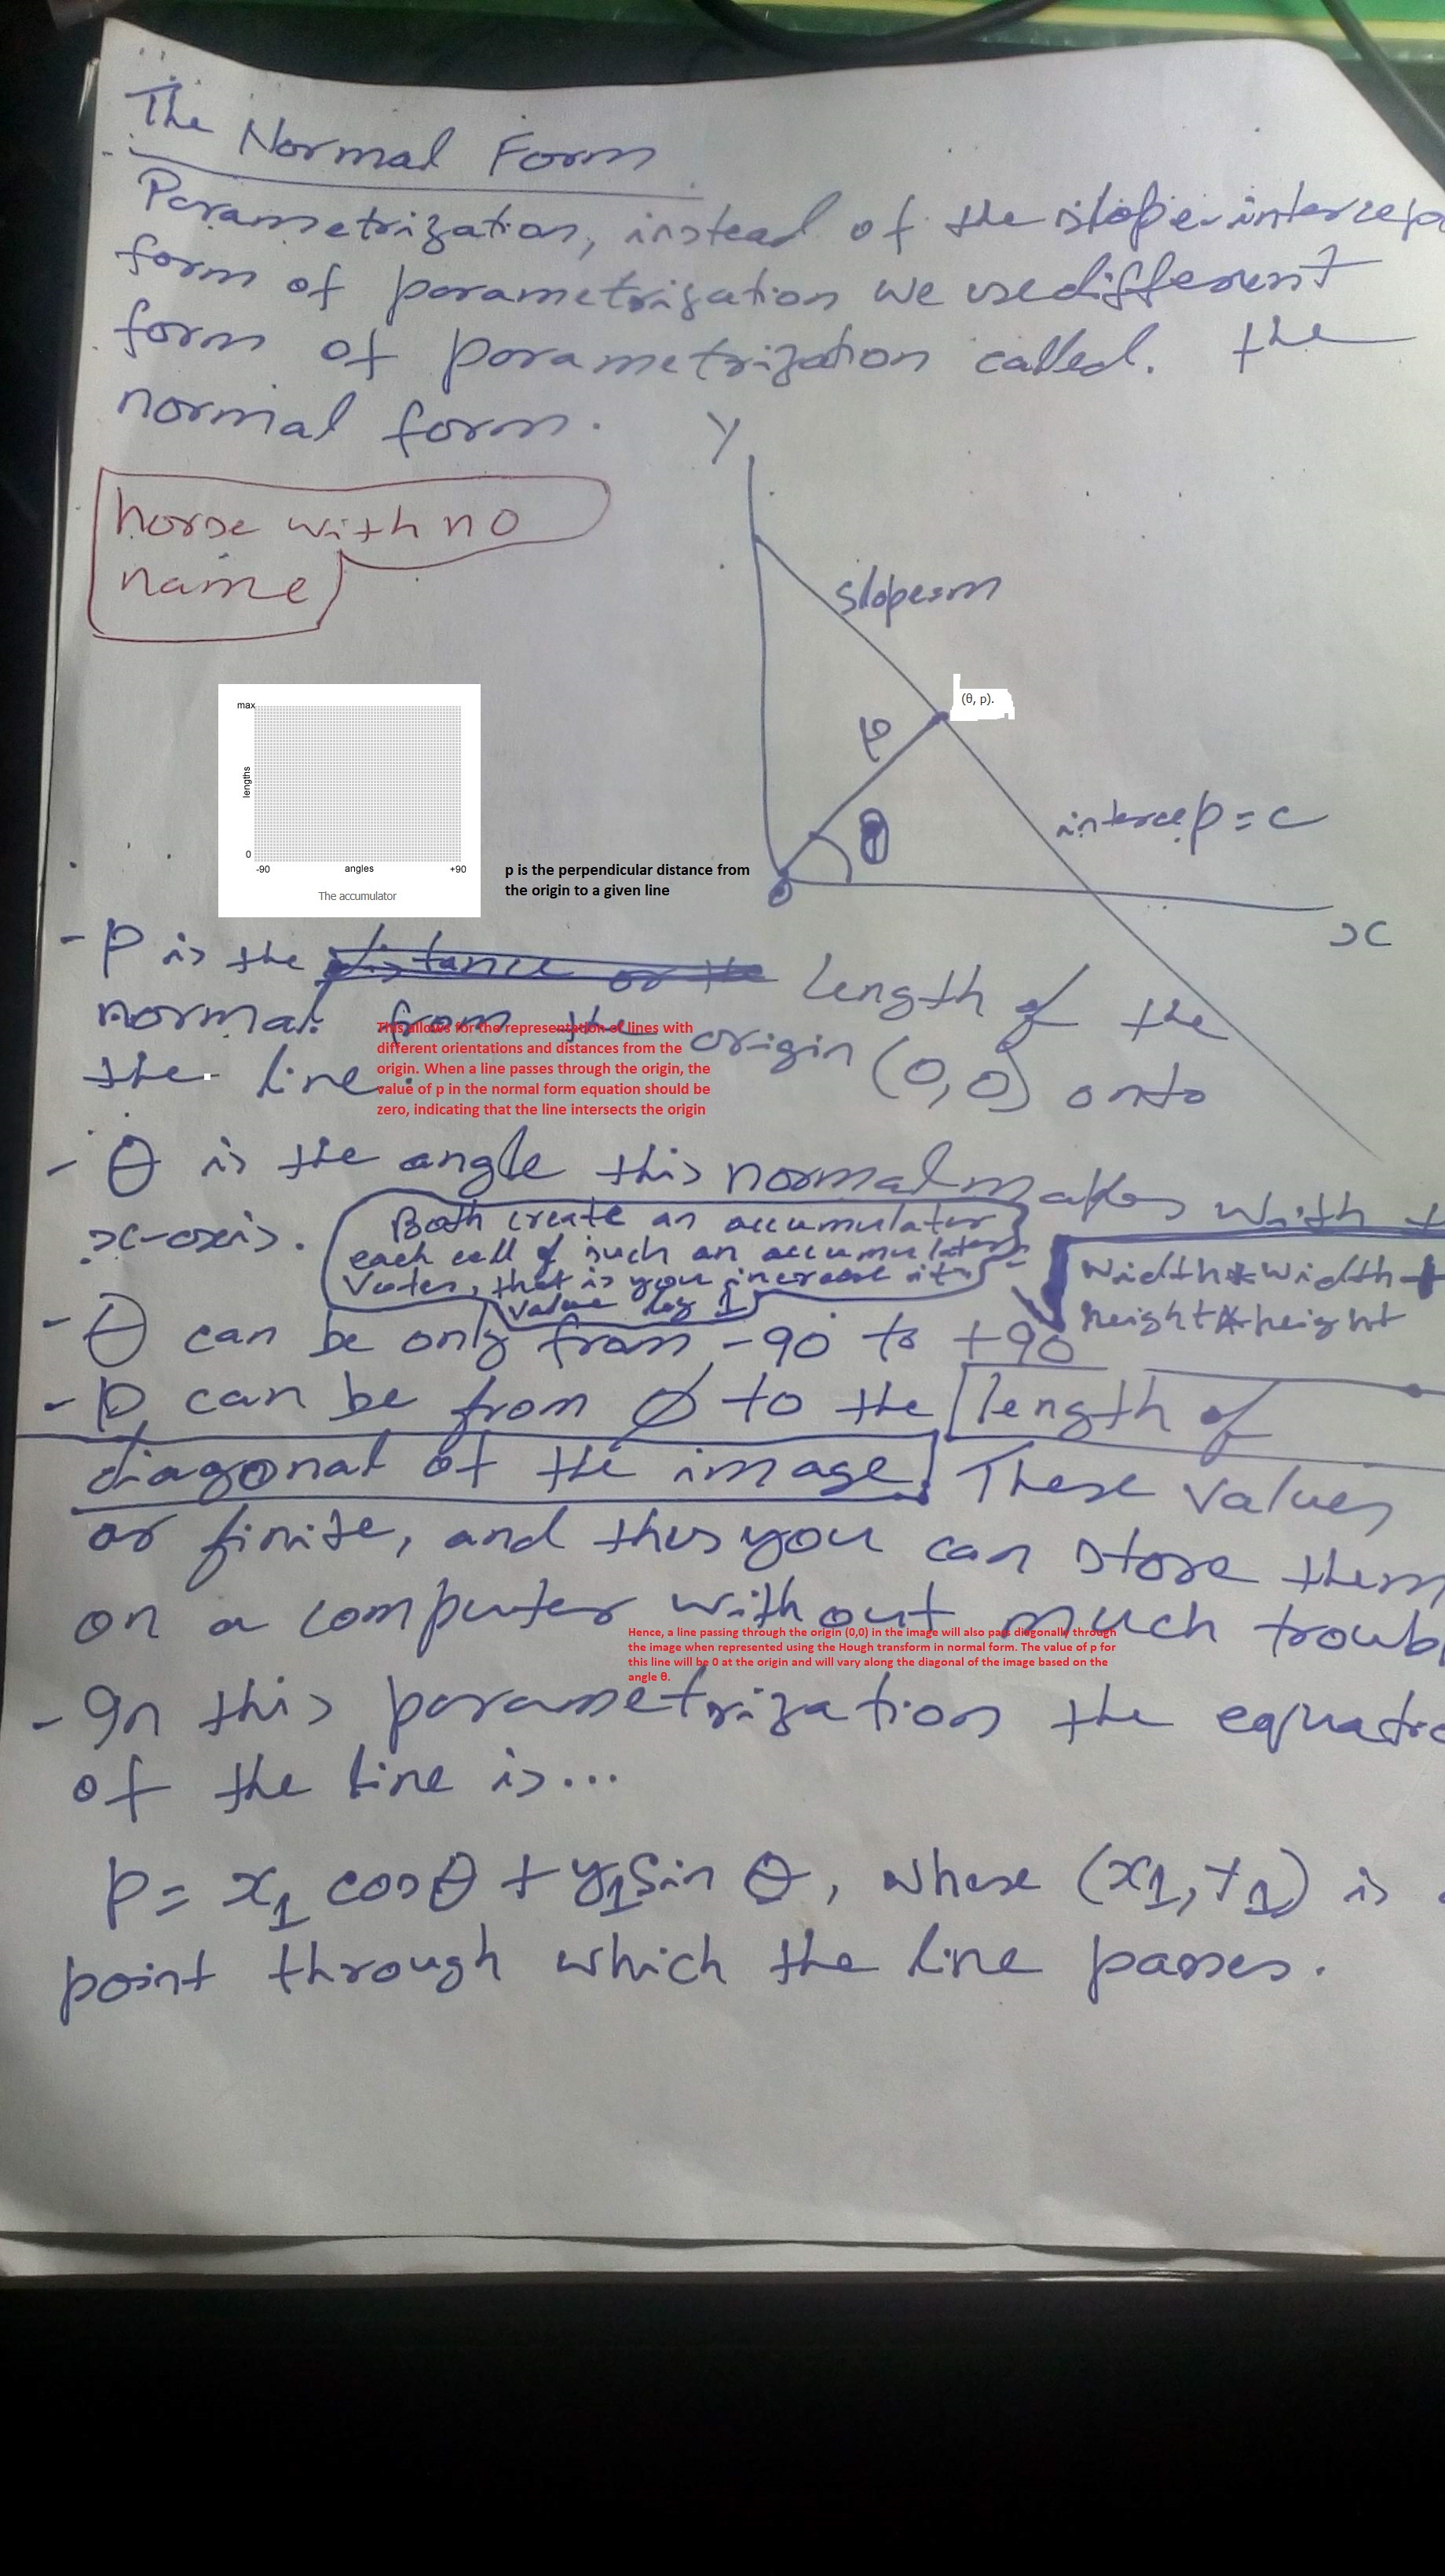 The Normal Form
Parametrization, instead of the slope-intercep
form of parametrization we use different
form of parametrization called. the
normal form.
horse with no
name
Y
slope=m
(θ, p).
p
θ
intercep = c
x
max
lengths
0
-90 angles +90
The accumulator
p is the perpendicular distance from
the origin to a given line
- P is the distance or the length of the
normal from the origin (0,0) onto
the line.
This allows for the representation of lines with
different orientations and distances from the
origin. When a line passes through the origin, the
value of p in the normal form equation should be
zero, indicating that the line intersects the origin
- θ is the angle this normal makes with t
x-axis.
Both create an accumulator
each cell of such an accumulator
Votes, that is you increase its
value by 1
width*width+
height*height
- θ can be only from -90 to +90
- P can be from 0 to the length of
diagonal of the image. These values
or finite, and thus you can store them
on a computer without much troub
Hence, a line passing through the origin (0,0) in the image will also pass diagonally through
the image when represented using the Hough transform in normal form. The value of p for
this line will be 0 at the origin and will vary along the diagonal of the image based on the
angle θ.
- In this parametrization the equatio
of the line is...
p = x1 cosθ + y1 sin θ, where (x1, y1) is
point through which the line passes.